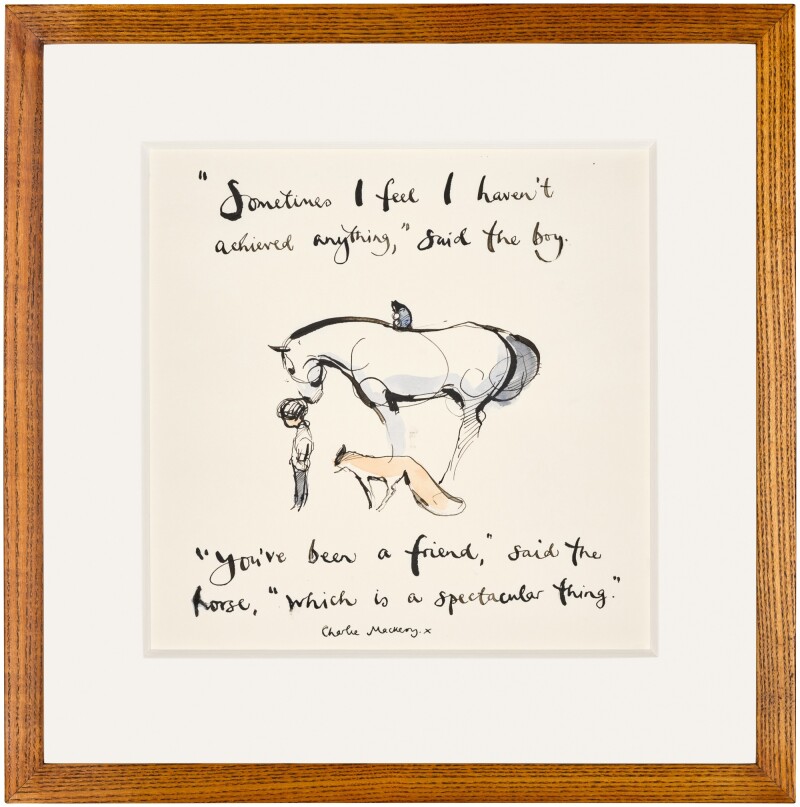 "Sometimes I feel I haven't
achieved anything," said the boy.
"you've been a friend," said the
horse, "which is a spectacular thing."
Charlie Mackesy. x